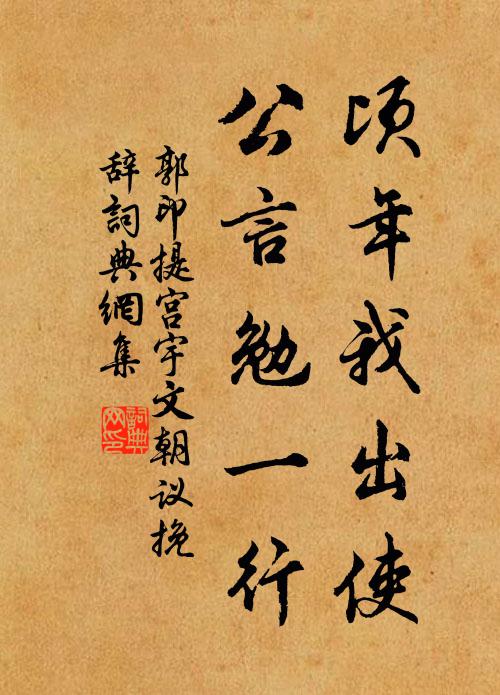 頃年我出使
公言勉一行
郭印提宫宇文朝议挽
辞詞典網集
詞典网印